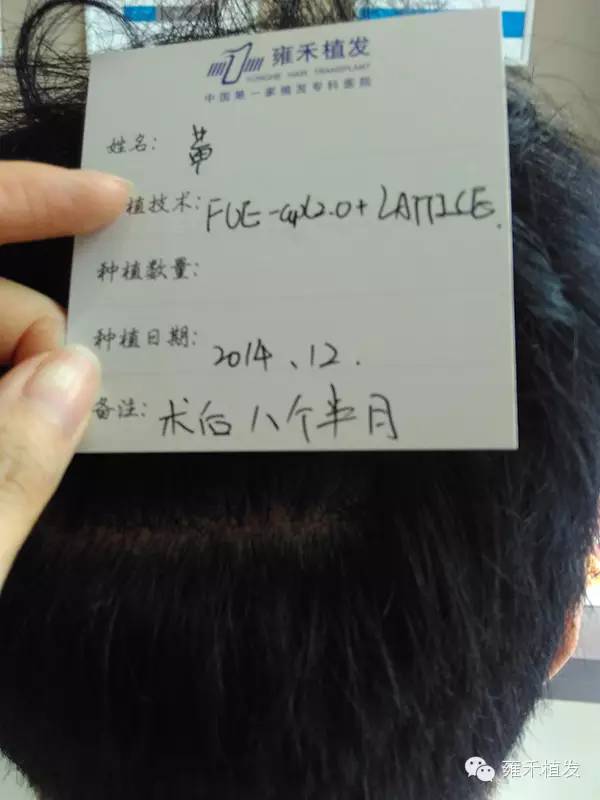 雍禾植发
YONGHE HAIR TRANSPLANT
中国第一家植发专科医院
姓名：黄
植技术：FUE-cpl2.0+LATTICE.
种植数量：
种植日期：2014、12.
备注：术后八个半月
雍禾植发